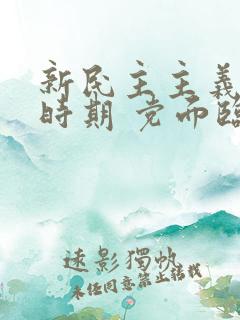 新民主主義
時期 党面臨
遠影獨帆
未经同意禁止转载